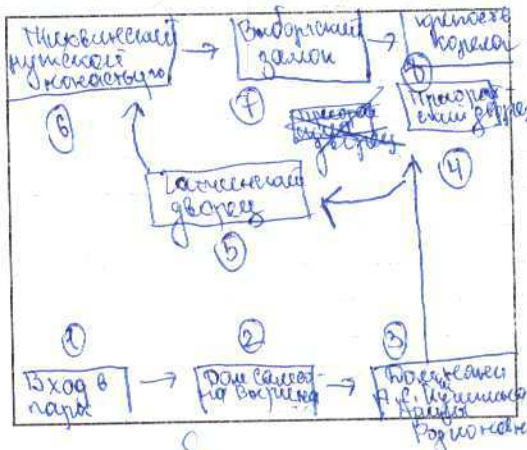 Тихвинский
мужской
монастырь
Выборгский
замок
крепость
Корела
6
7
8
Приорат
ский дворец
4
Гатчинский
дворец
5
1
2
3
Вход в
парк
Дом
на Вырина
А.С. Пушкина
Арины
Родионовны